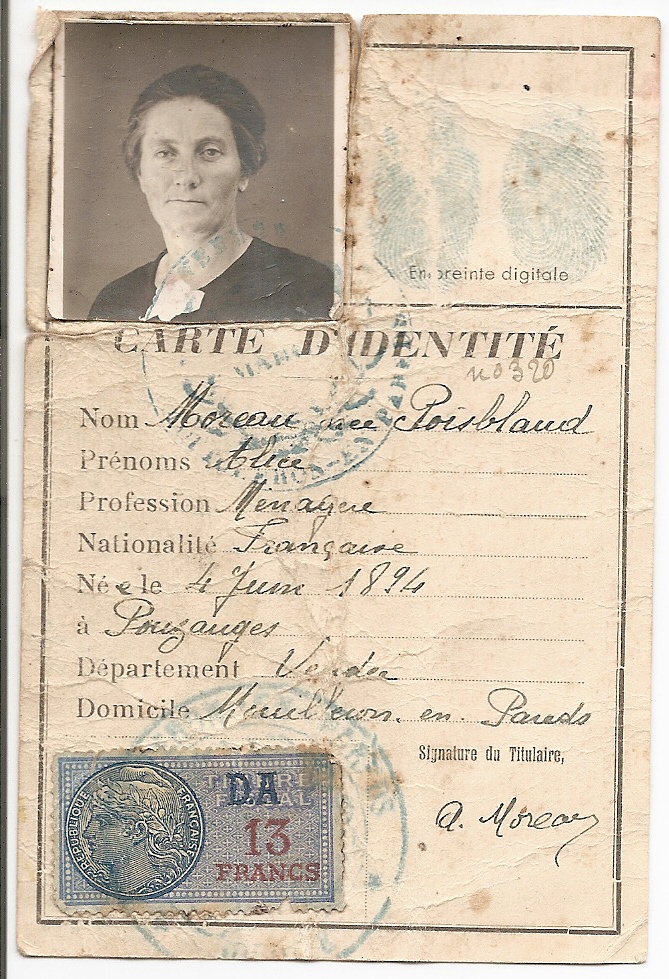 Empreinte digitale
CARTE D'IDENTITÉ
no 320
Nom Moreau née Poisblaud
Prénoms Alice
Profession Ménagère
Nationalité Française
Née le 4 Juin 1894
à Pouzanges
Département Vendée
Domicile Mouilleron en Pareds
Signature du Titulaire,
A. Moreau
RÉPUBLIQUE FRANÇAISE
TIMBRE
FISCAL
DA
13
FRANCS